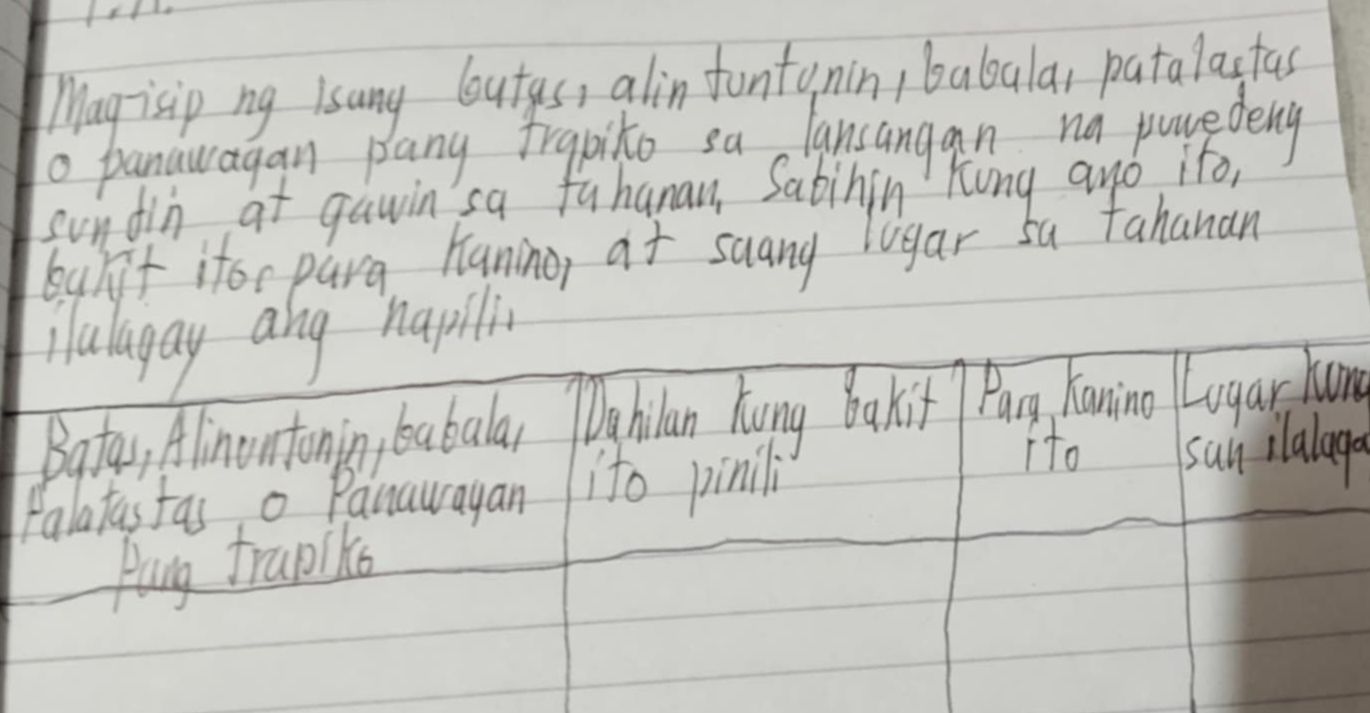 Mag-isip ng isang batas, alintuntunin, babala, patalastas
o panawagan pang trapiko sa lansangan na puwedeng
sundin at gawin sa tahanan. Sabihin kung ano ito,
bakit ito, para kanino, at saang lugar sa tahanan
ilalagay ang napili.
Batas, Alinuntunin, babala, Dahilan kung bakit Para kanino Lugar kung
Palatastas o Panawagan ito pinili ito san ilalaga
Pang trapiko